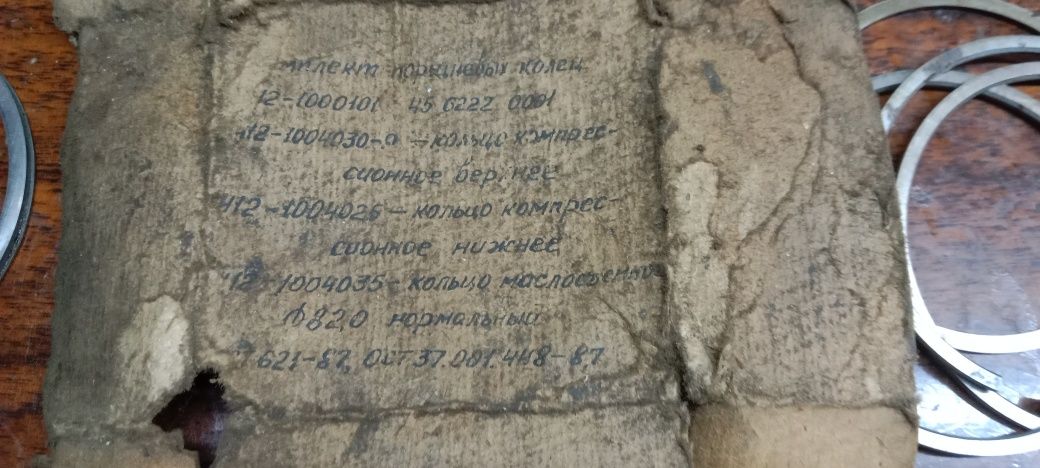 мплект поршневых колец
12-1000101 45 6222 0001
412-1004030- – кольцо компрес-
сионное верхнее
412-1004025 – кольцо компрес-
сионное нижнее
12-1004035- кольцо маслосъемное
ф82,0 нормальный
621-87, ОСТ.37.001.448-87